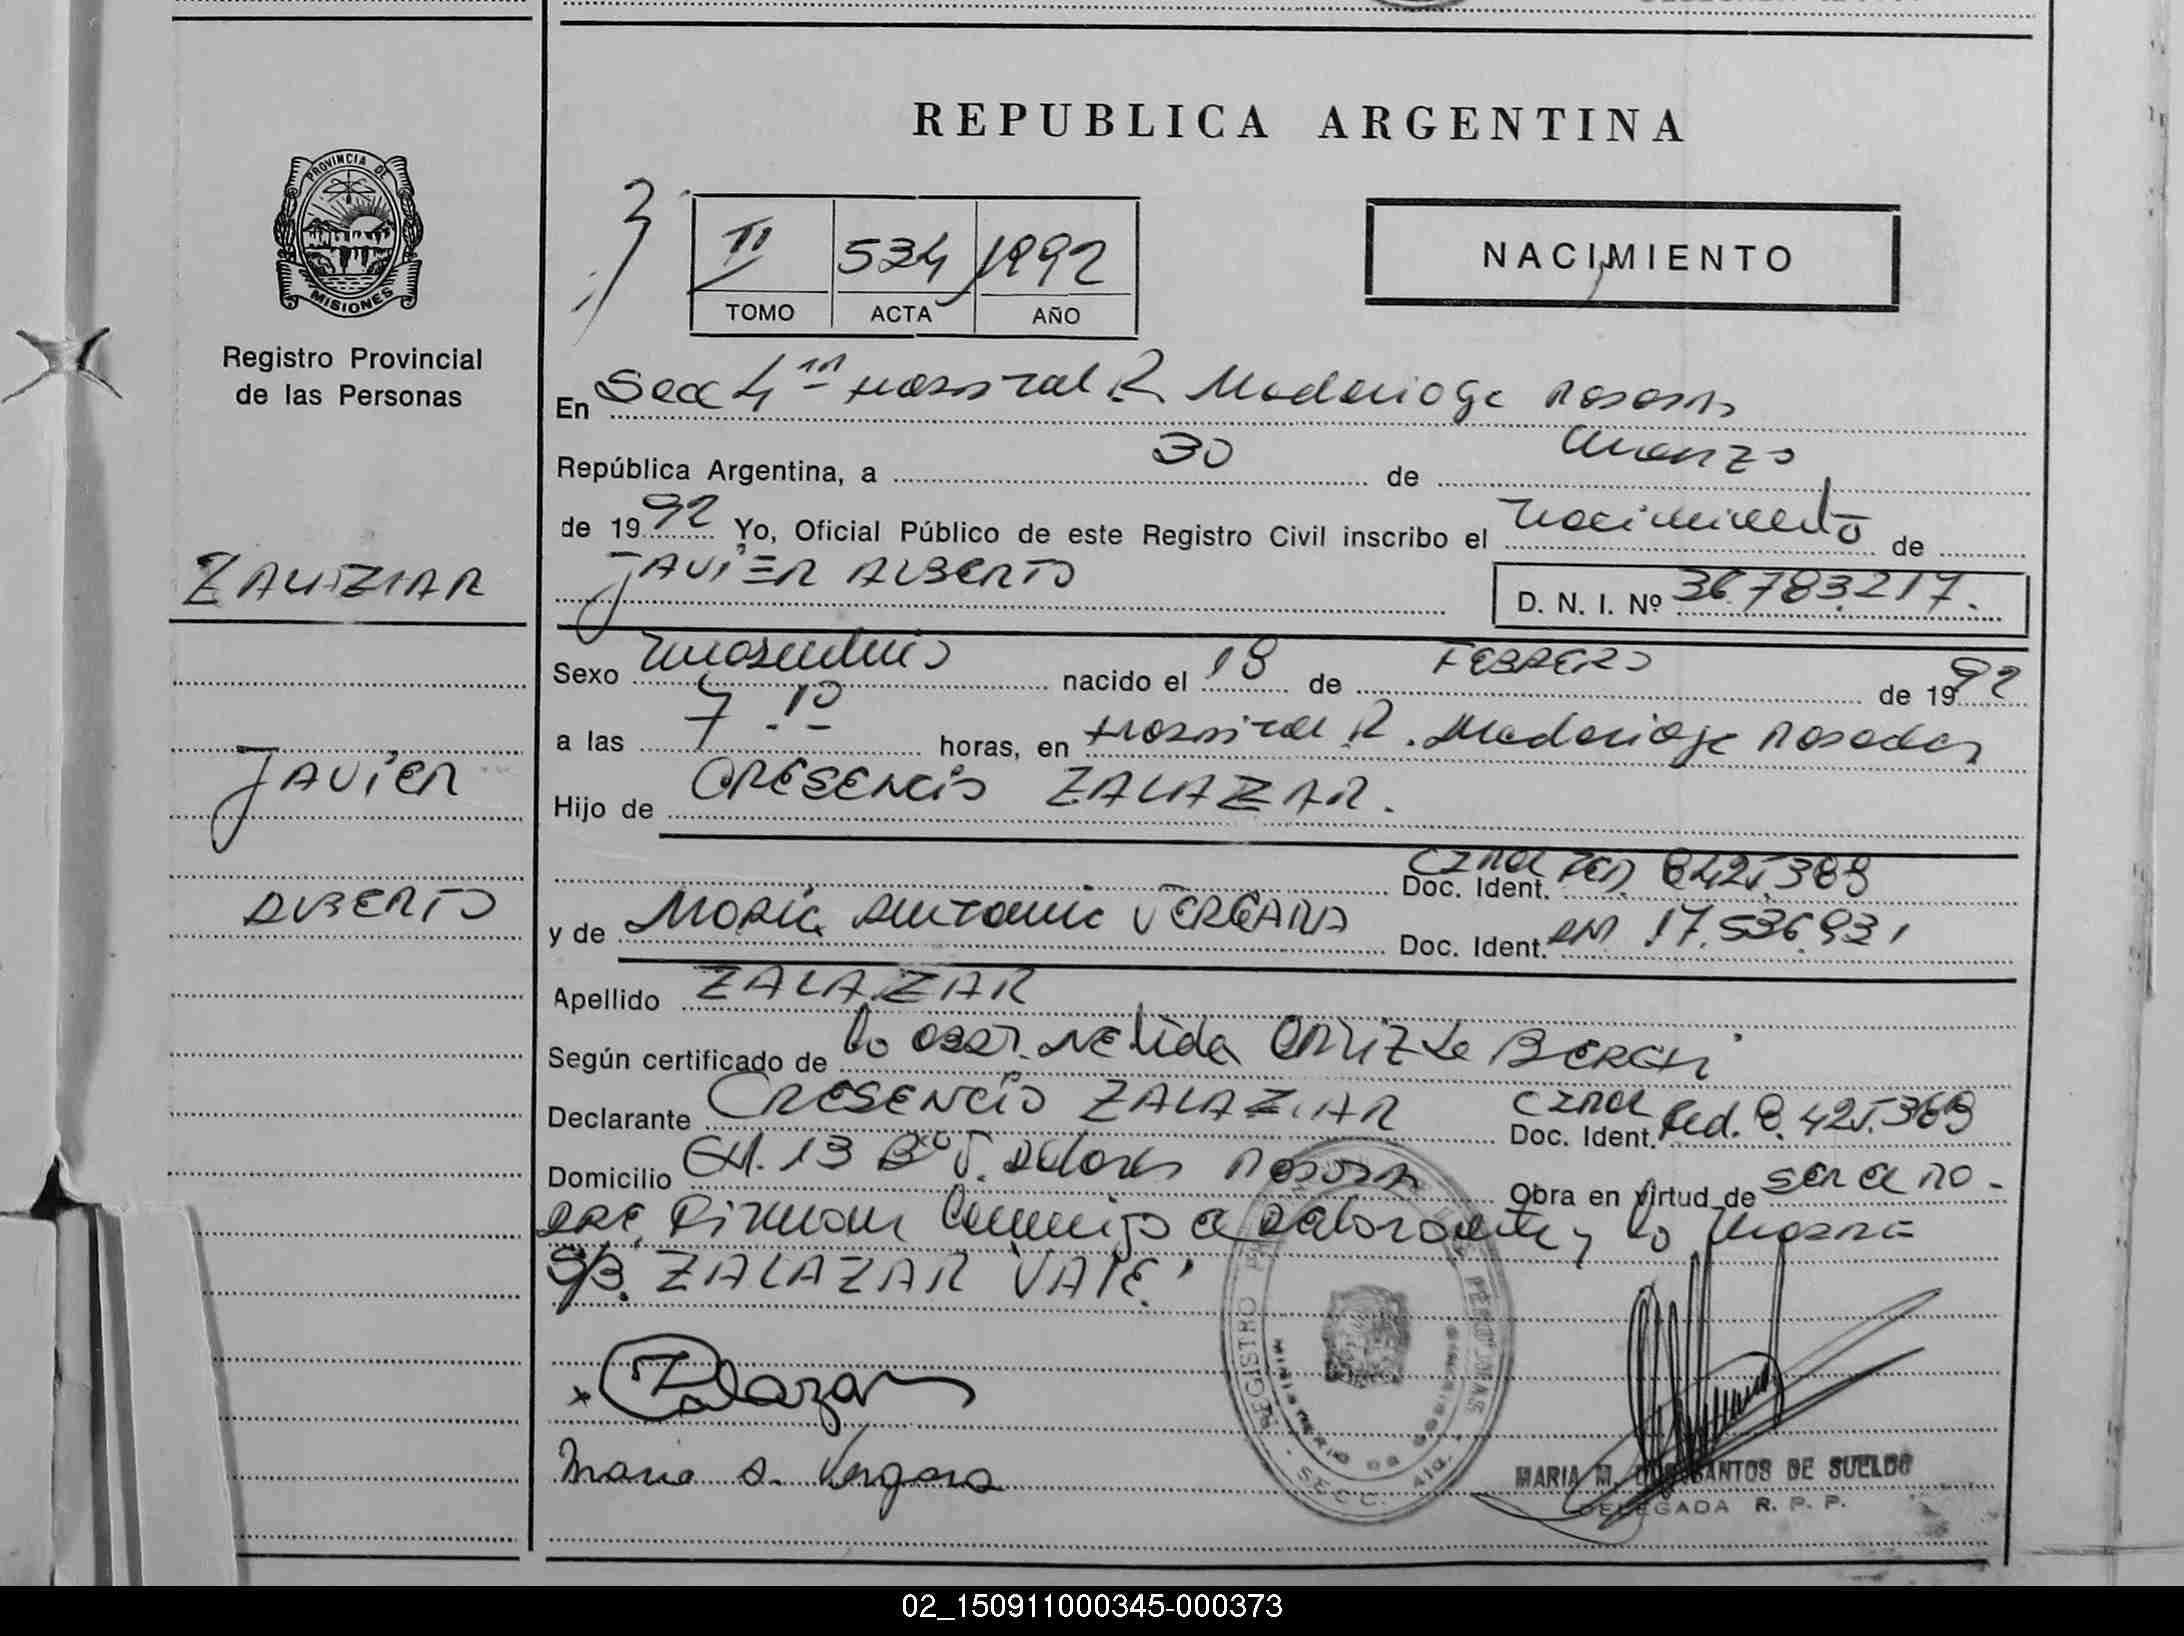 REPUBLICA ARGENTINA
PROVINCIA DE
MISIONES
Registro Provincial
de las Personas
II 534 1992
TOMO ACTA AÑO
NACIMIENTO
En Secc 4ta Hospital R. Madariaga Posadas
República Argentina, a 30 de Marzo
de 1992 Yo, Oficial Público de este Registro Civil inscribo el nacimiento de
JAVIER ALBERTO D. N. I. Nº 36.783.217.
ZALAZAR
JAVIER
ALBERTO
Sexo masculino nacido el 18 de FEBRERO de 1992
a las 7 10 horas, en Hospital R. Madariaga Posadas
Hijo de CRESENCIO ZALAZAR.
Doc. Ident. 8.425.389
y de Maria Antonia VERGARA Doc. Ident. DNI 17.536.931
Apellido ZALAZAR
Según certificado de la Obst. Nelida Ortiz de BERGH
Declarante CRESENCIO ZALAZAR Doc. Ident. Ced. 8.425.389
Domicilio CH. 13 Bº V. Dolores Posadas Obra en virtud de ser el pa-
dre, Firman conmigo el declarante y la madre
S/B. ZALAZAR "VALE"
Zalazar
Maria A. Vergara
REGISTRO PERSONAS
MINISTERIO DE GOBIERNO
SECC. 4ta.
MARIA M. DOS SANTOS DE SUELDO
DELEGADA R. P. P.
02_150911000345-000373